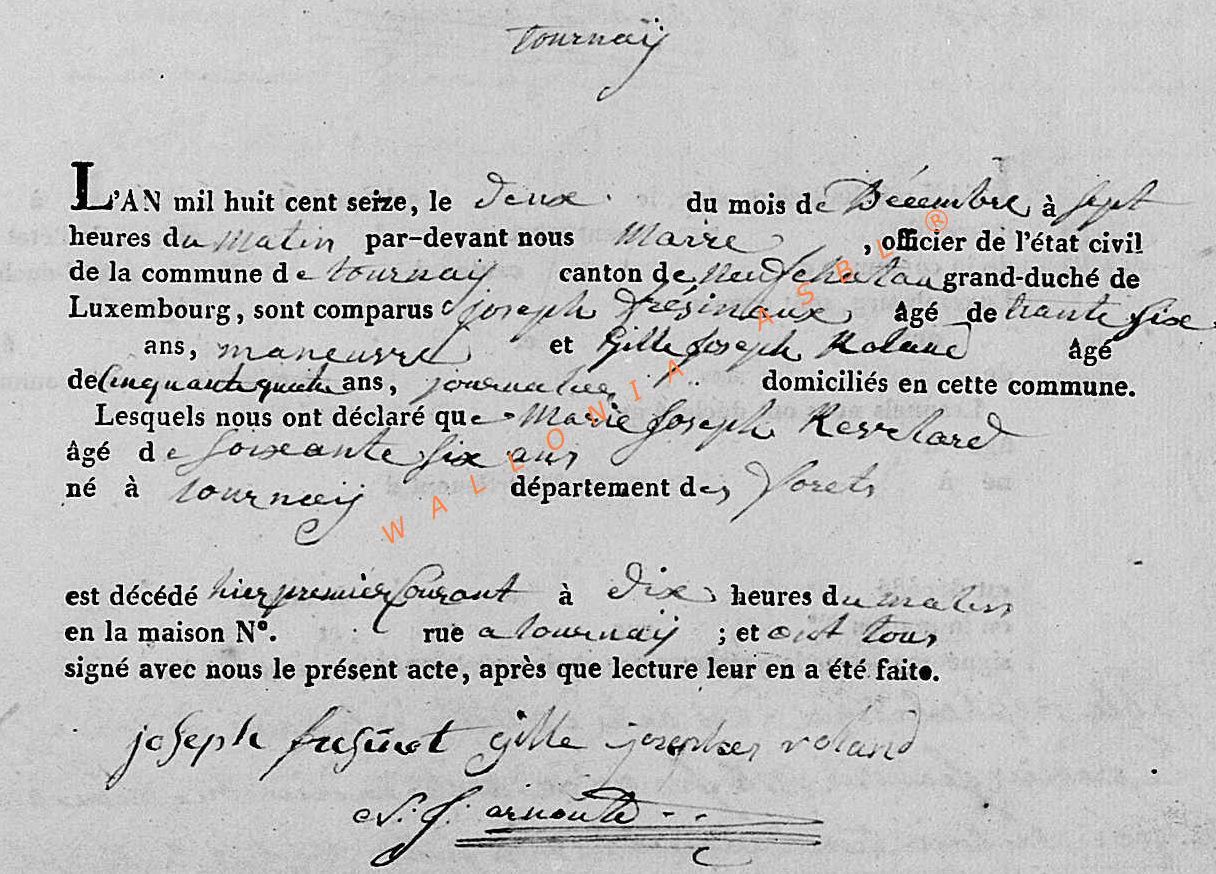 tournaÿ
L'AN mil huit cent seize, le deux du mois de Décembre à sept
heures du matin par-devant nous Maire, officier de l'état civil
de la commune de tournaÿ canton de neufchatau grand-duché de
Luxembourg, sont comparus joseph frésinaux âgé de trante six
ans, maneuvre et Gille Joseph Roland âgé
de Cinquante quatre ans, journalier domiciliés en cette commune.
Lesquels nous ont déclaré que Marie Joseph
âgé de soixante six ans
né à tournaÿ département des forets
est décédé hier premier Courant à dix heures du matin
en la maison N°. rue a tournaÿ ; et ont tous
signé avec nous le présent acte, après que lecture leur en a été faite.
joseph gille joseph roland
arnould
WALLONIA ASBL ®